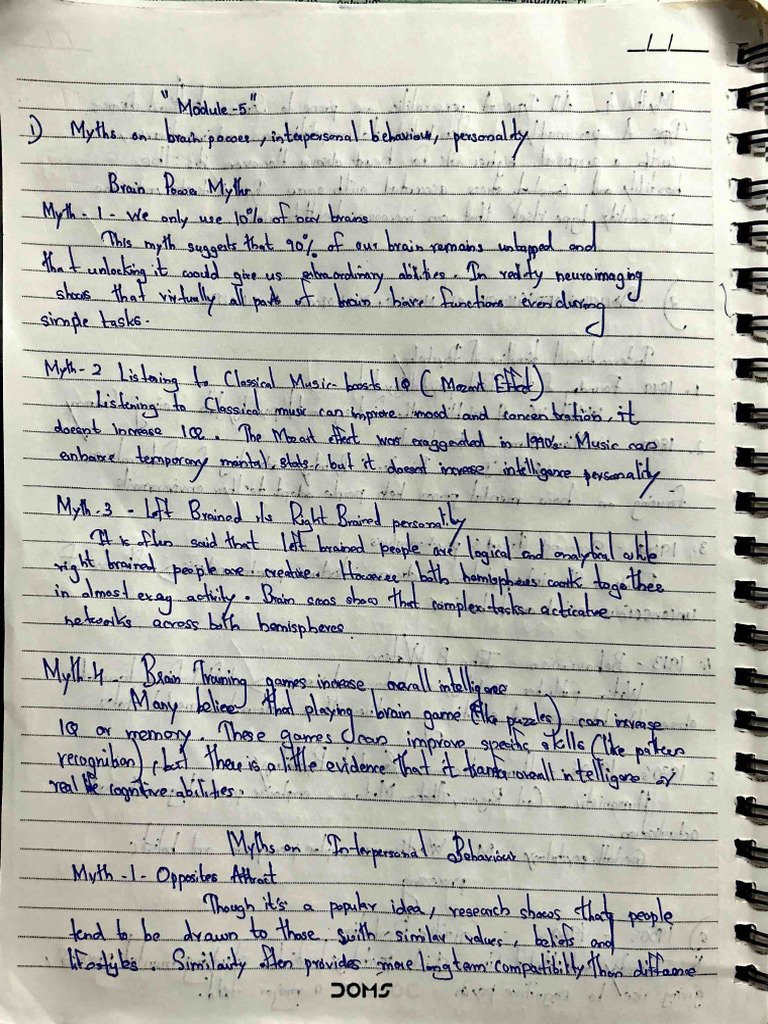 "Module-5"
1) Myths on brain power, interpersonal behaviour, personality
Brain Power Myths
Myth-1- We only use 10% of our brains
This myth suggests that 90% of our brain remains untapped and
that unlocking it could give us extraordinary abilities. In reality neuroimaging
shows that virtually all parts of brain have functions even during
simple tasks.
Myth-2 Listening to Classical Music boosts IQ (Mozart Effect)
Listening to Classical music can improve mood and concentration, it
doesnt increase IQ. The Mozart effect was exaggerated in 1990s. Music can
enhance temporary mental state, but it doesnt increase intelligence personality
Myth-3 - Left Brained v/s Right Brained personality
It is often said that left brained people are logical and analytical while
right brained people are creative. However both hemispheres work together
in almost every activity. Brain scans show that complex tasks activate
networks across both hemispheres.
Myth-4 Brain Training games increase overall intelligence
Many believe that playing brain game (like puzzles) can increase
IQ or memory. These games can improve specific skills (like pattern
recognition), but there is a little evidence that it overall intelligence or
real life cognitive abilities.
Myths on Interpersonal Behaviour
Myth-1- Opposites Attract
Though it's a popular idea, research shows that people
tend to be drawn to those with similar values, beliefs and
lifestyles. Similarity often provides more long term compatibility than difference
DOMS